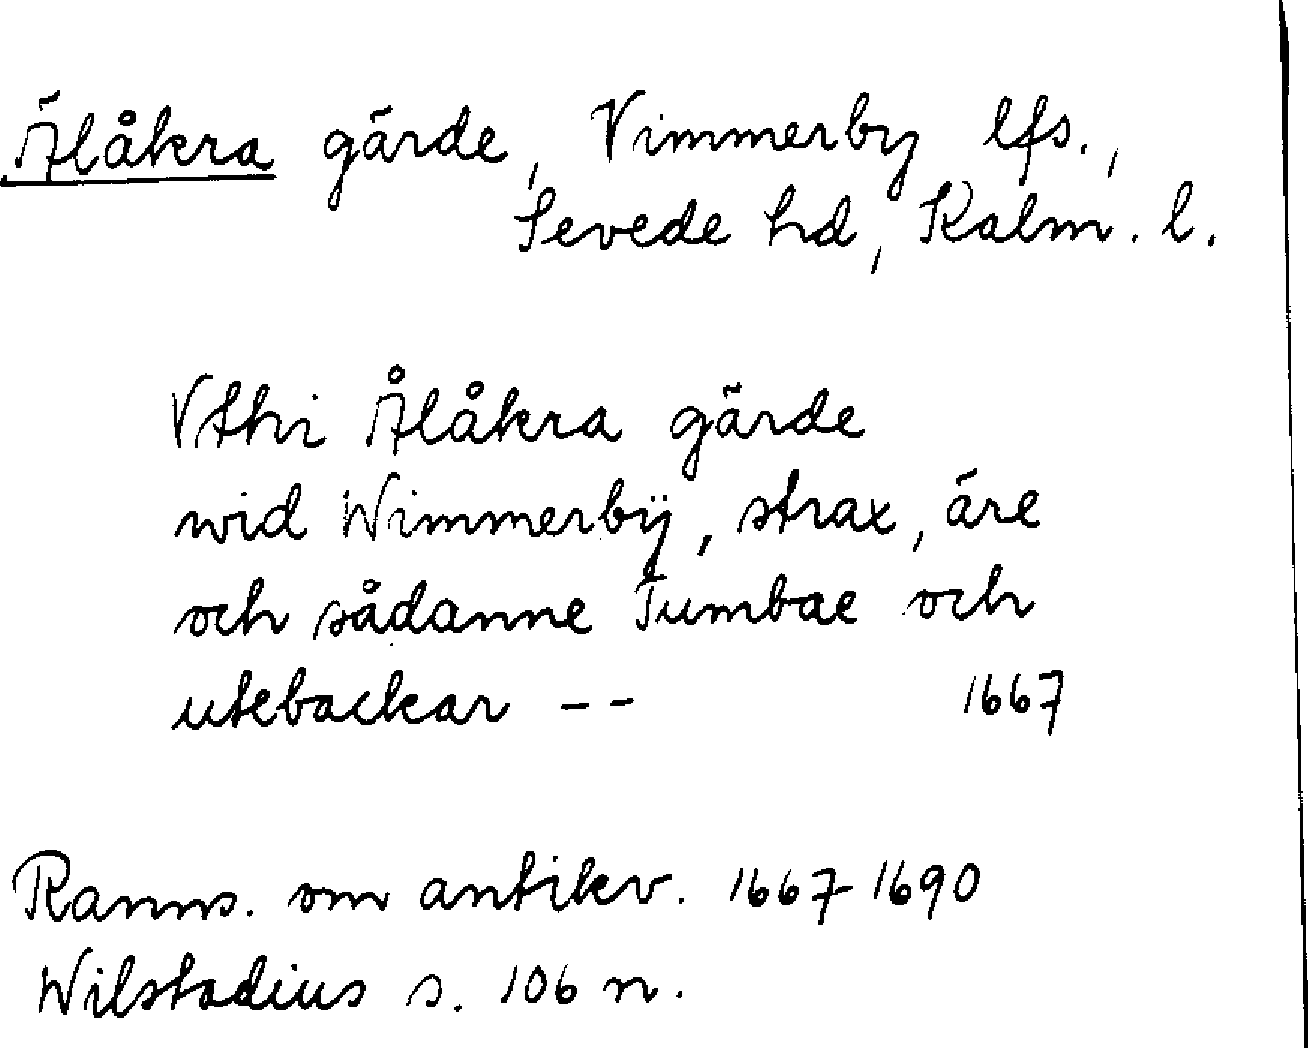 Älåkra gärde, Vimmerby lfs.,
Sevede hd, Kalm. l.
Vthi Ålåkra gärde
wid Wimmerbÿ, strax, äre
och sådanne Tumbae och
utebackar --  1667
Ranns. om antikv. 1667-1690
Wilstadius s. 106 n.